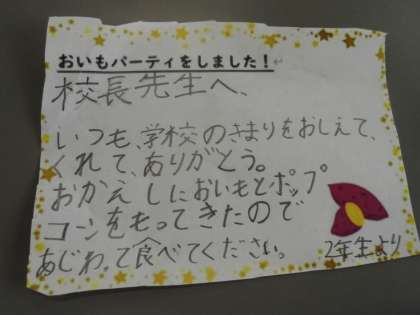 おいもパーティをしました！
校長先生へ、
いつも、学校のきまりをおしえて、
くれて、ありがとう。
おかえしにおいもとポップ
コーンをもってきたので
あじわって食べてください。
2年生より